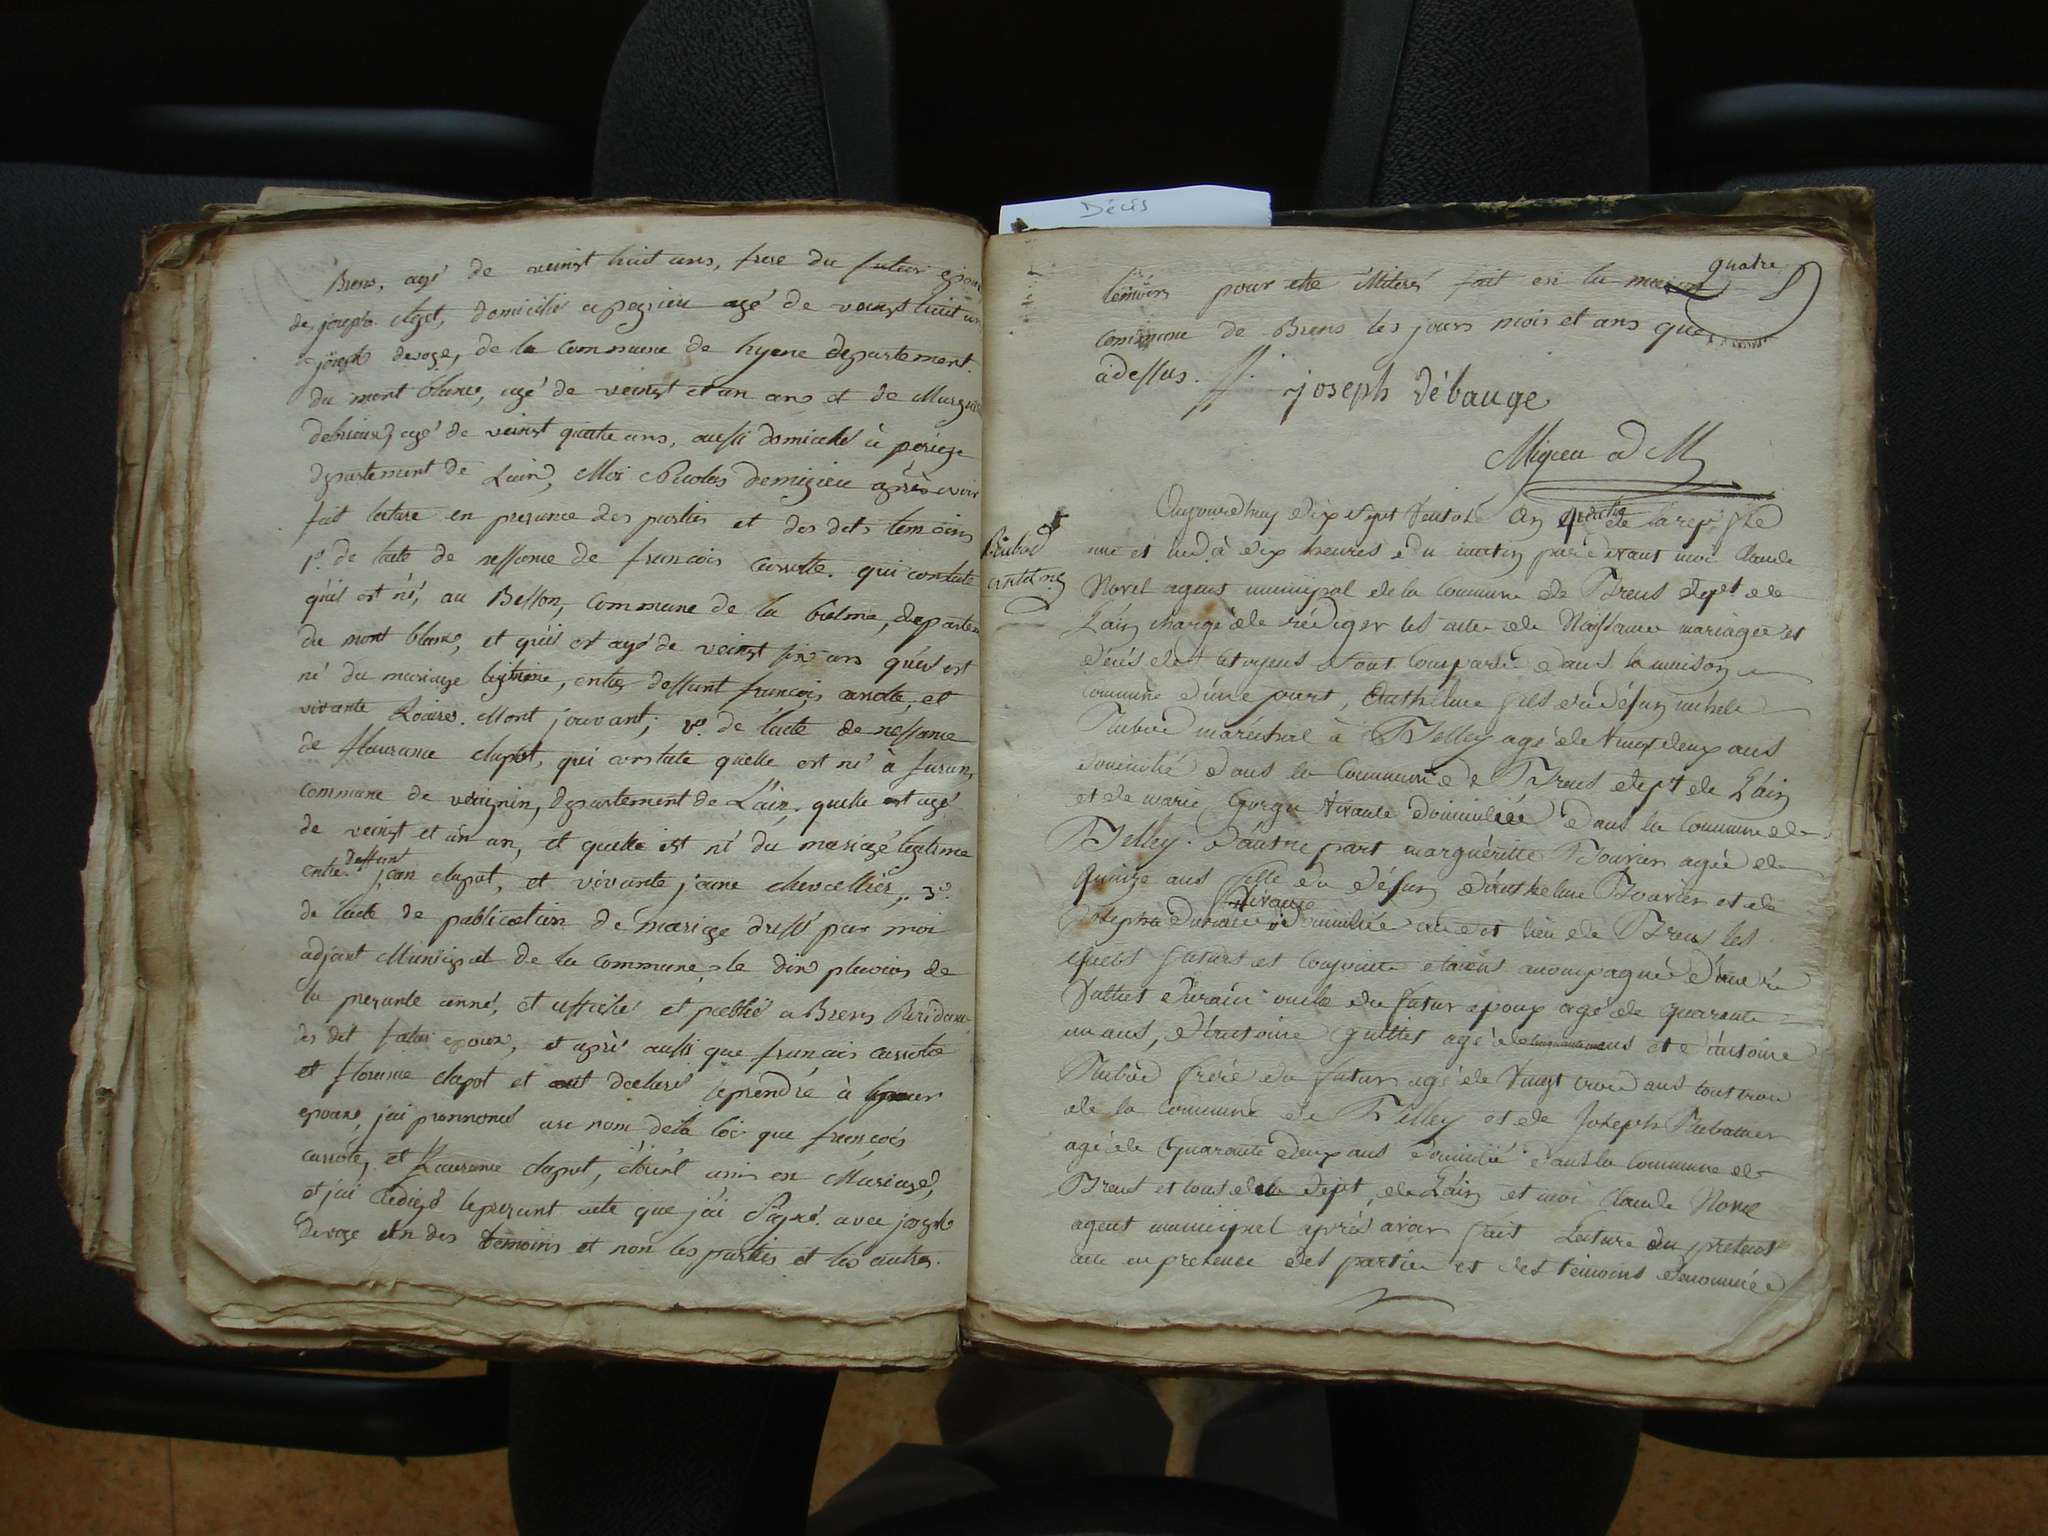 Brens, agé de veingt huit ans, frere du futur epoux
de joseph clapt, domicilié a pezieu agé de veingt huit ans
joseph devoge, de la commune de hyene departement
du mont blanc, agé de veingt et un ans et de
agé de veingt quatre ans, aussi domicilié à
departement de Lain, Moi Nicolas demigieu après avoir
fait lecture en presance des parties et des dits temoins
1º. de lacte de nessance de francois carrotte. qui constate
quil est né, au Besson, commune de la balme, departem
du mont blanc, et quil est agé de veingt six ans quil est
né du mariage legitime, entre deffunt françois carrotte, et
vivante Mont jouvant; 2º. de lacte de nessance
de flaurance clapot, qui constate quelle est né à furan,
commune de veirignin, departement de Lain. quelle est agé
de veingt et un an, et quelle est né du mariage legitime
entre deffunt jean clapot, et vivante jane chevellier, 3º
de lacte de publication de mariage dressé par moi
adjoint Municipal de la commune, le dix pluvios de
la presante année, et affiché et publié a Brens
des dit futur epoux, et après aussi que francois carrotte
et floranse clapot et ont declaré se prendre à
epoux, jai prononcé au nom de la loi que françois
carrote, et Laurance clapot, étoient unis en Mariage,
et jai redigé le presant acte que jai signé avec joseph
devoge un des temoins et non les parties et les autres.
Décès
quatre
temoins pour etre fait en la maison
commune de Brens les jours mois et ans que
adessus.
joseph débauge
Migieu a M
Aujourdhuy dix sept Ventose an quatre de la rep. fse
une et ind à dix heures du matin par devant moi Claude
Novel agent municipal de la commune de Brens dept de
Lain chargé de rédiger les actes de Naissance mariage et
décés des citoyens sont comparu dans la maison
commune d'une part, Anthelme fils du défun michele
Rubod maréchal à Felley agé de Vingt deux ans
domicilié dans la commune de Brens dept de Lain
et de marie Gorgu vivante domiciliée dans la commune de
Belley. D'autre part marguéritte Bouvier agée de
quinze ans fille du défun d'anthelme Bouvier et de
vivante
domiciliée au dt lieu de Brens les
quels futurs et conjoints etoient accompagné d'andré
oncle du futur epoux agé de quarante
un ans, d'antoine Guillet agé de ans et d'antoine
Rubod frere du futur agé de vingt trois ans tous trois
de la commune de Belley et de Joseph
agé de quarante deux ans domicilié dans la commune de
Brens et tous de dept de Lain et moi Claude Novel
agent municipal après avoir fait lecture du présent
acte en presence des parties et des témoins dénommée
Rubod
antelme